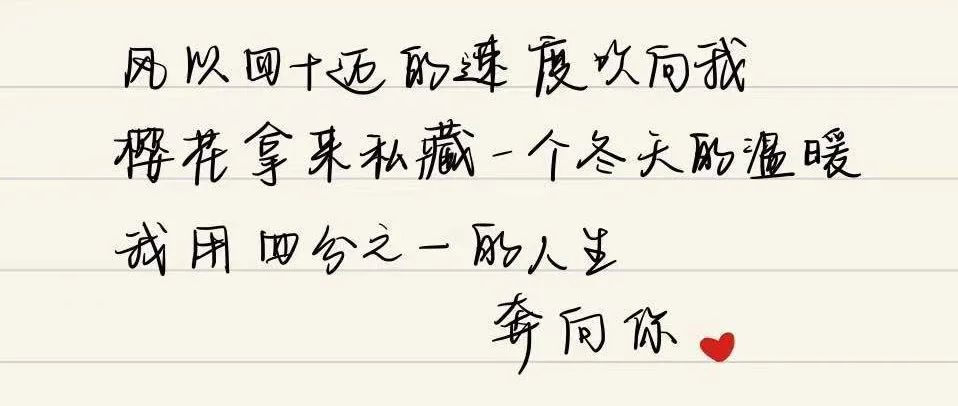 风以四十迈的速度吹向我
樱花拿来私藏一个冬天的温暖
我用四分之一的人生
奔向你